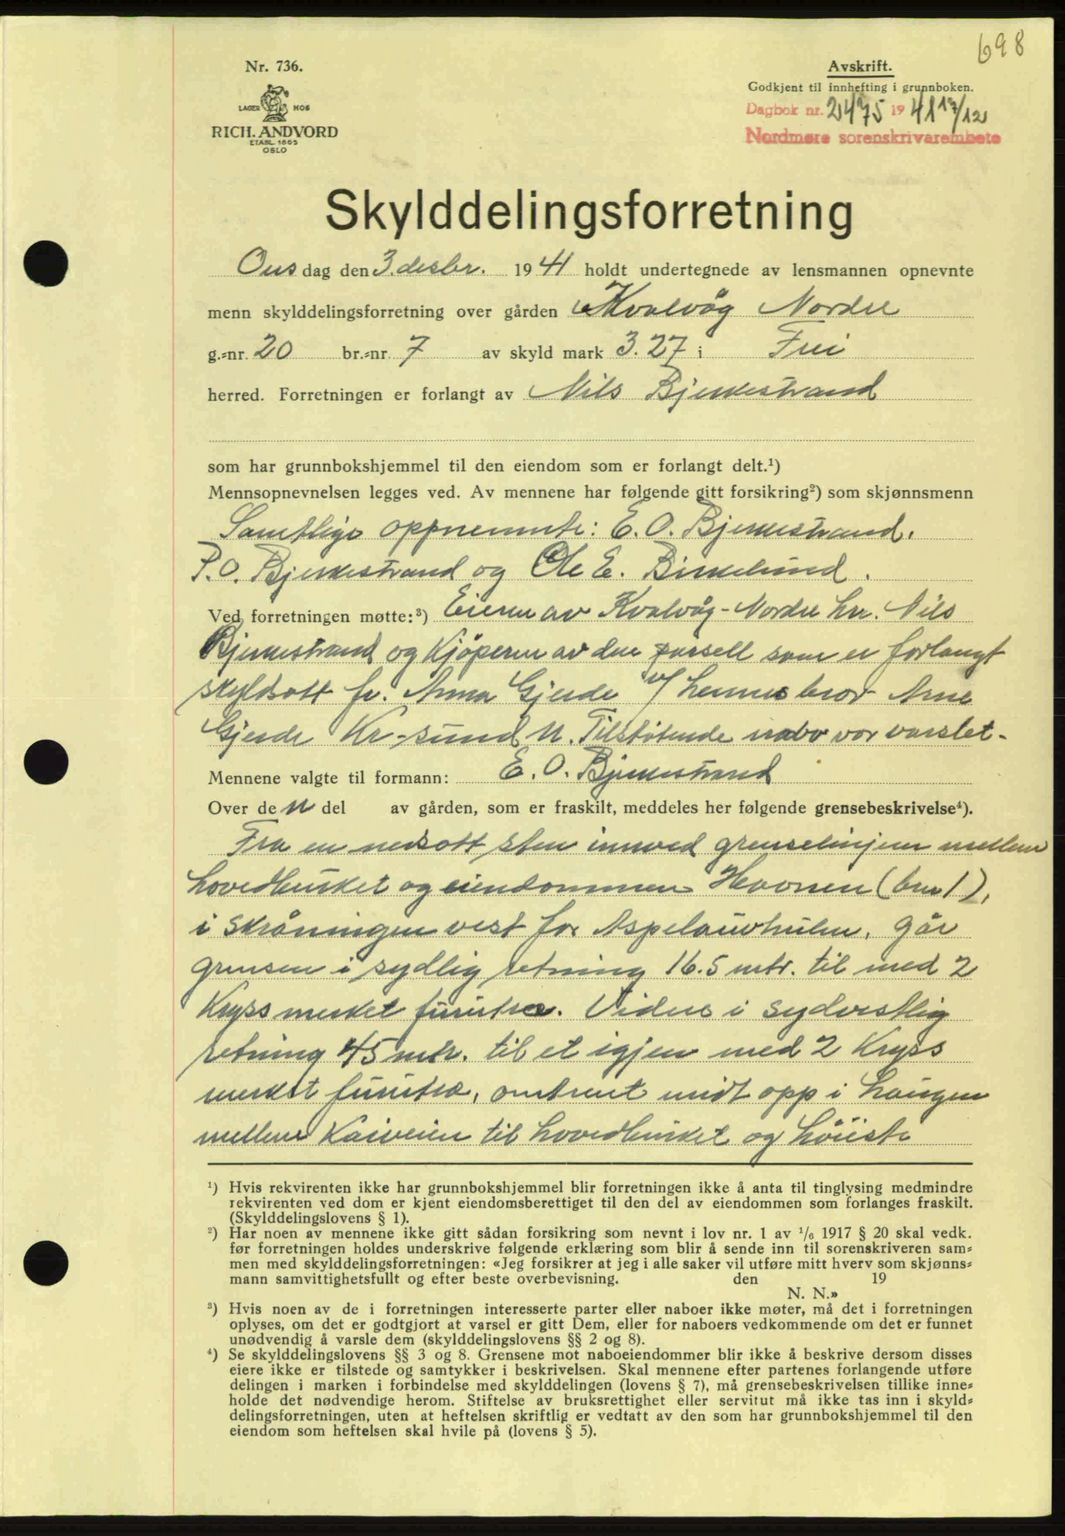 698
Nr. 736.
LAGER HOS
RICH. ANDVORD
ETABL. 1865
OSLO
Avskrift.
Godkjent til innhefting i grunnboken.
Dagbok nr. 2475 1941 17/12
Nordmøre sorenskrivarembete
Skylddelingsforretning
Ons dag den 3. desbr. 1941 holdt undertegnede av lensmannen opnevnte
menn skylddelingsforretning over gården Kvalvåg Nordre
g.=nr. 20 br.=nr. 7 av skyld mark 3.27 i Frei
herred. Forretningen er forlangt av Nils Bjerkestrand
som har grunnbokshjemmel til den eiendom som er forlangt delt.¹)
Mennsopnevnelsen legges ved. Av mennene har følgende gitt forsikring²) som skjønnsmenn
Samtlige oppnemnte: E. O. Bjerkestrand,
P. O. Bjerkestrand og Ole E. Birkelund.
Ved forretningen møtte:³) Eieren av Kvalvåg-Nordre hr. Nils
Bjerkestrand og kjøperen av den parsell som er forlangt
skyldsatt fr. Anna Gjerde v/ hennes bror Arne
Gjerde Kr-sund N. Tilstøtende nabo var varslet.
Mennene valgte til formann: E. O. Bjerkestrand
Over de n del av gården, som er fraskilt, meddeles her følgende grensebeskrivelse⁴).
Fra en nedsatt sten innved grenselinjen mellem
hovedbruket og eiendommen Havnen (bnr 1),
i skråningen vest for Aspelauvhulen, går
grensen i sydlig retning 16.5 mtr. til med 2
kryss merket furutre. Videre i sydvestlig
retning 45 mtr. til et igjen med 2 kryss
merket furutre, omtrent midt opp i haugen
mellem Kaiveien til hovedbruket og høieste
¹) Hvis rekvirenten ikke har grunnbokshjemmel blir forretningen ikke å anta til tinglysing medmindre
rekvirenten ved dom er kjent eiendomsberettiget til den del av eiendommen som forlanges fraskilt.
(Skylddelingslovens § 1).
²) Har noen av mennene ikke gitt sådan forsikring som nevnt i lov nr. 1 av ¹/₆ 1917 § 20 skal vedk.
før forretningen holdes underskrive følgende erklæring som blir å sende inn til sorenskriveren sam=
men med skylddelingsforretningen: «Jeg forsikrer at jeg i alle saker vil utføre mitt hverv som skjønns=
mann samvittighetsfullt og efter beste overbevisning. den 19
N. N.»
³) Hvis noen av de i forretningen interesserte parter eller naboer ikke møter, må det i forretningen
oplyses, om det er godtgjort at varsel er gitt Dem, eller for naboers vedkommende om det er funnet
unødvendig å varsle dem (skylddelingslovens §§ 2 og 8).
⁴) Se skylddelingslovens §§ 3 og 8. Grensene mot naboeiendommer blir ikke å beskrive dersom disses
eiere ikke er tilstede og samtykker i beskrivelsen. Skal mennene efter partenes forlangende utføre
delingen i marken i forbindelse med skylddelingen (lovens § 7), må grensebeskrivelsen tillike inne=
holde det nødvendige herom. Stiftelse av bruksrettighet eller servitut må ikke tas inn i skyld=
delingsforretningen, uten at heftelsen skriftlig er vedtatt av den som har grunnbokshjemmel til den
eiendom som heftelsen skal hvile på (lovens § 5).